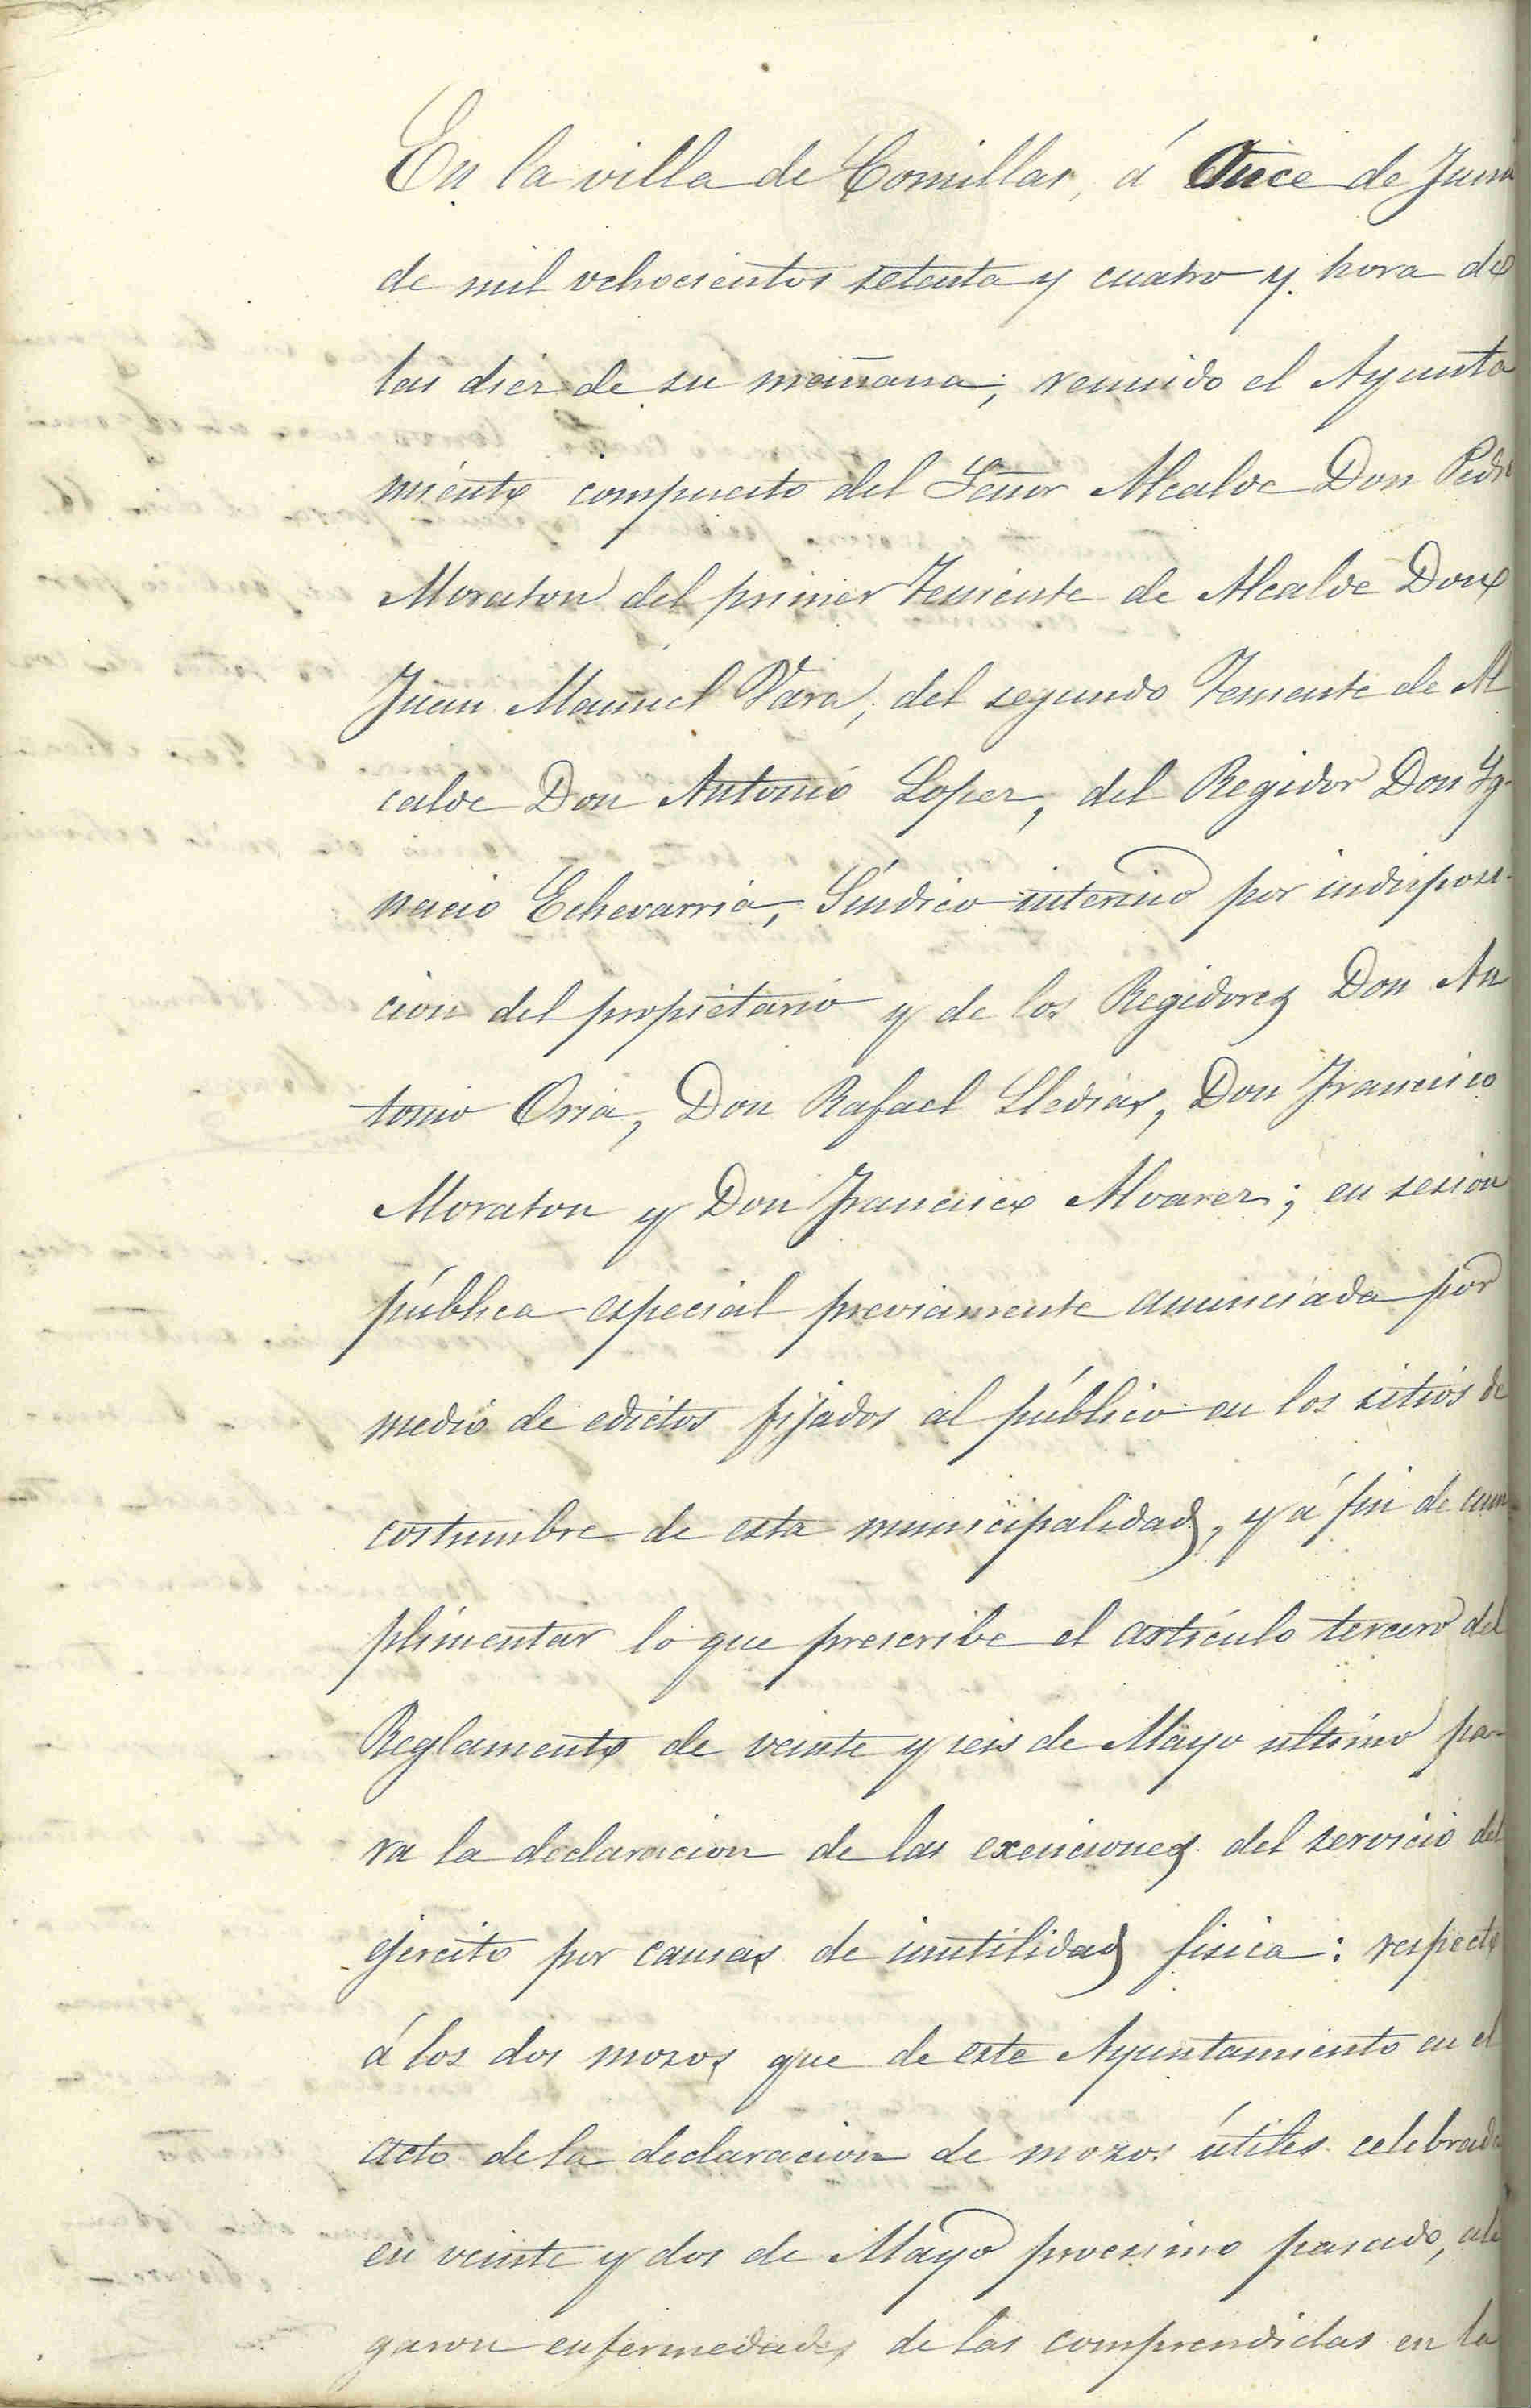 En la villa de Comillas, á Once de Junio
de mil ochocientos setenta y cuatro y hora de
las diez de su mañana; reunido el Ayunta
miento compuesto del Señor Alcalde Don Pedro
Moraton del primer Teniente de Alcalde Don
Juan Manuel Vara; del segundo Teniente de Al
calde Don Antonio Lopez, del Regidor Don Yg-
nacio Echevarria, Síndico interino por indisposi-
cion del propietario y de los Regidores Don An
tonio Oria, Don Rafael Lledias, Don Francisco
Moraton y Don Francisco Alvarez; en sesion
pública especial previamente anunciada por
medio de edictos fijados al público en los sitios de
costumbre de esta municipalidad, y á fin de cum
plimentar lo que prescribe el artículo tercero del
Reglamento de veinte y seis de Mayo último pa-
ra la declaracion de las exenciones del servicio del
ejercito por causas de inutilidad fisica: respecto
á los dos mozos que de este Ayuntamiento en el
acto de la declaracion de mozos útiles celebrado
en veinte y dos de Mayo procsimo pasado, ale
garon enfermedades de las comprendidas en la